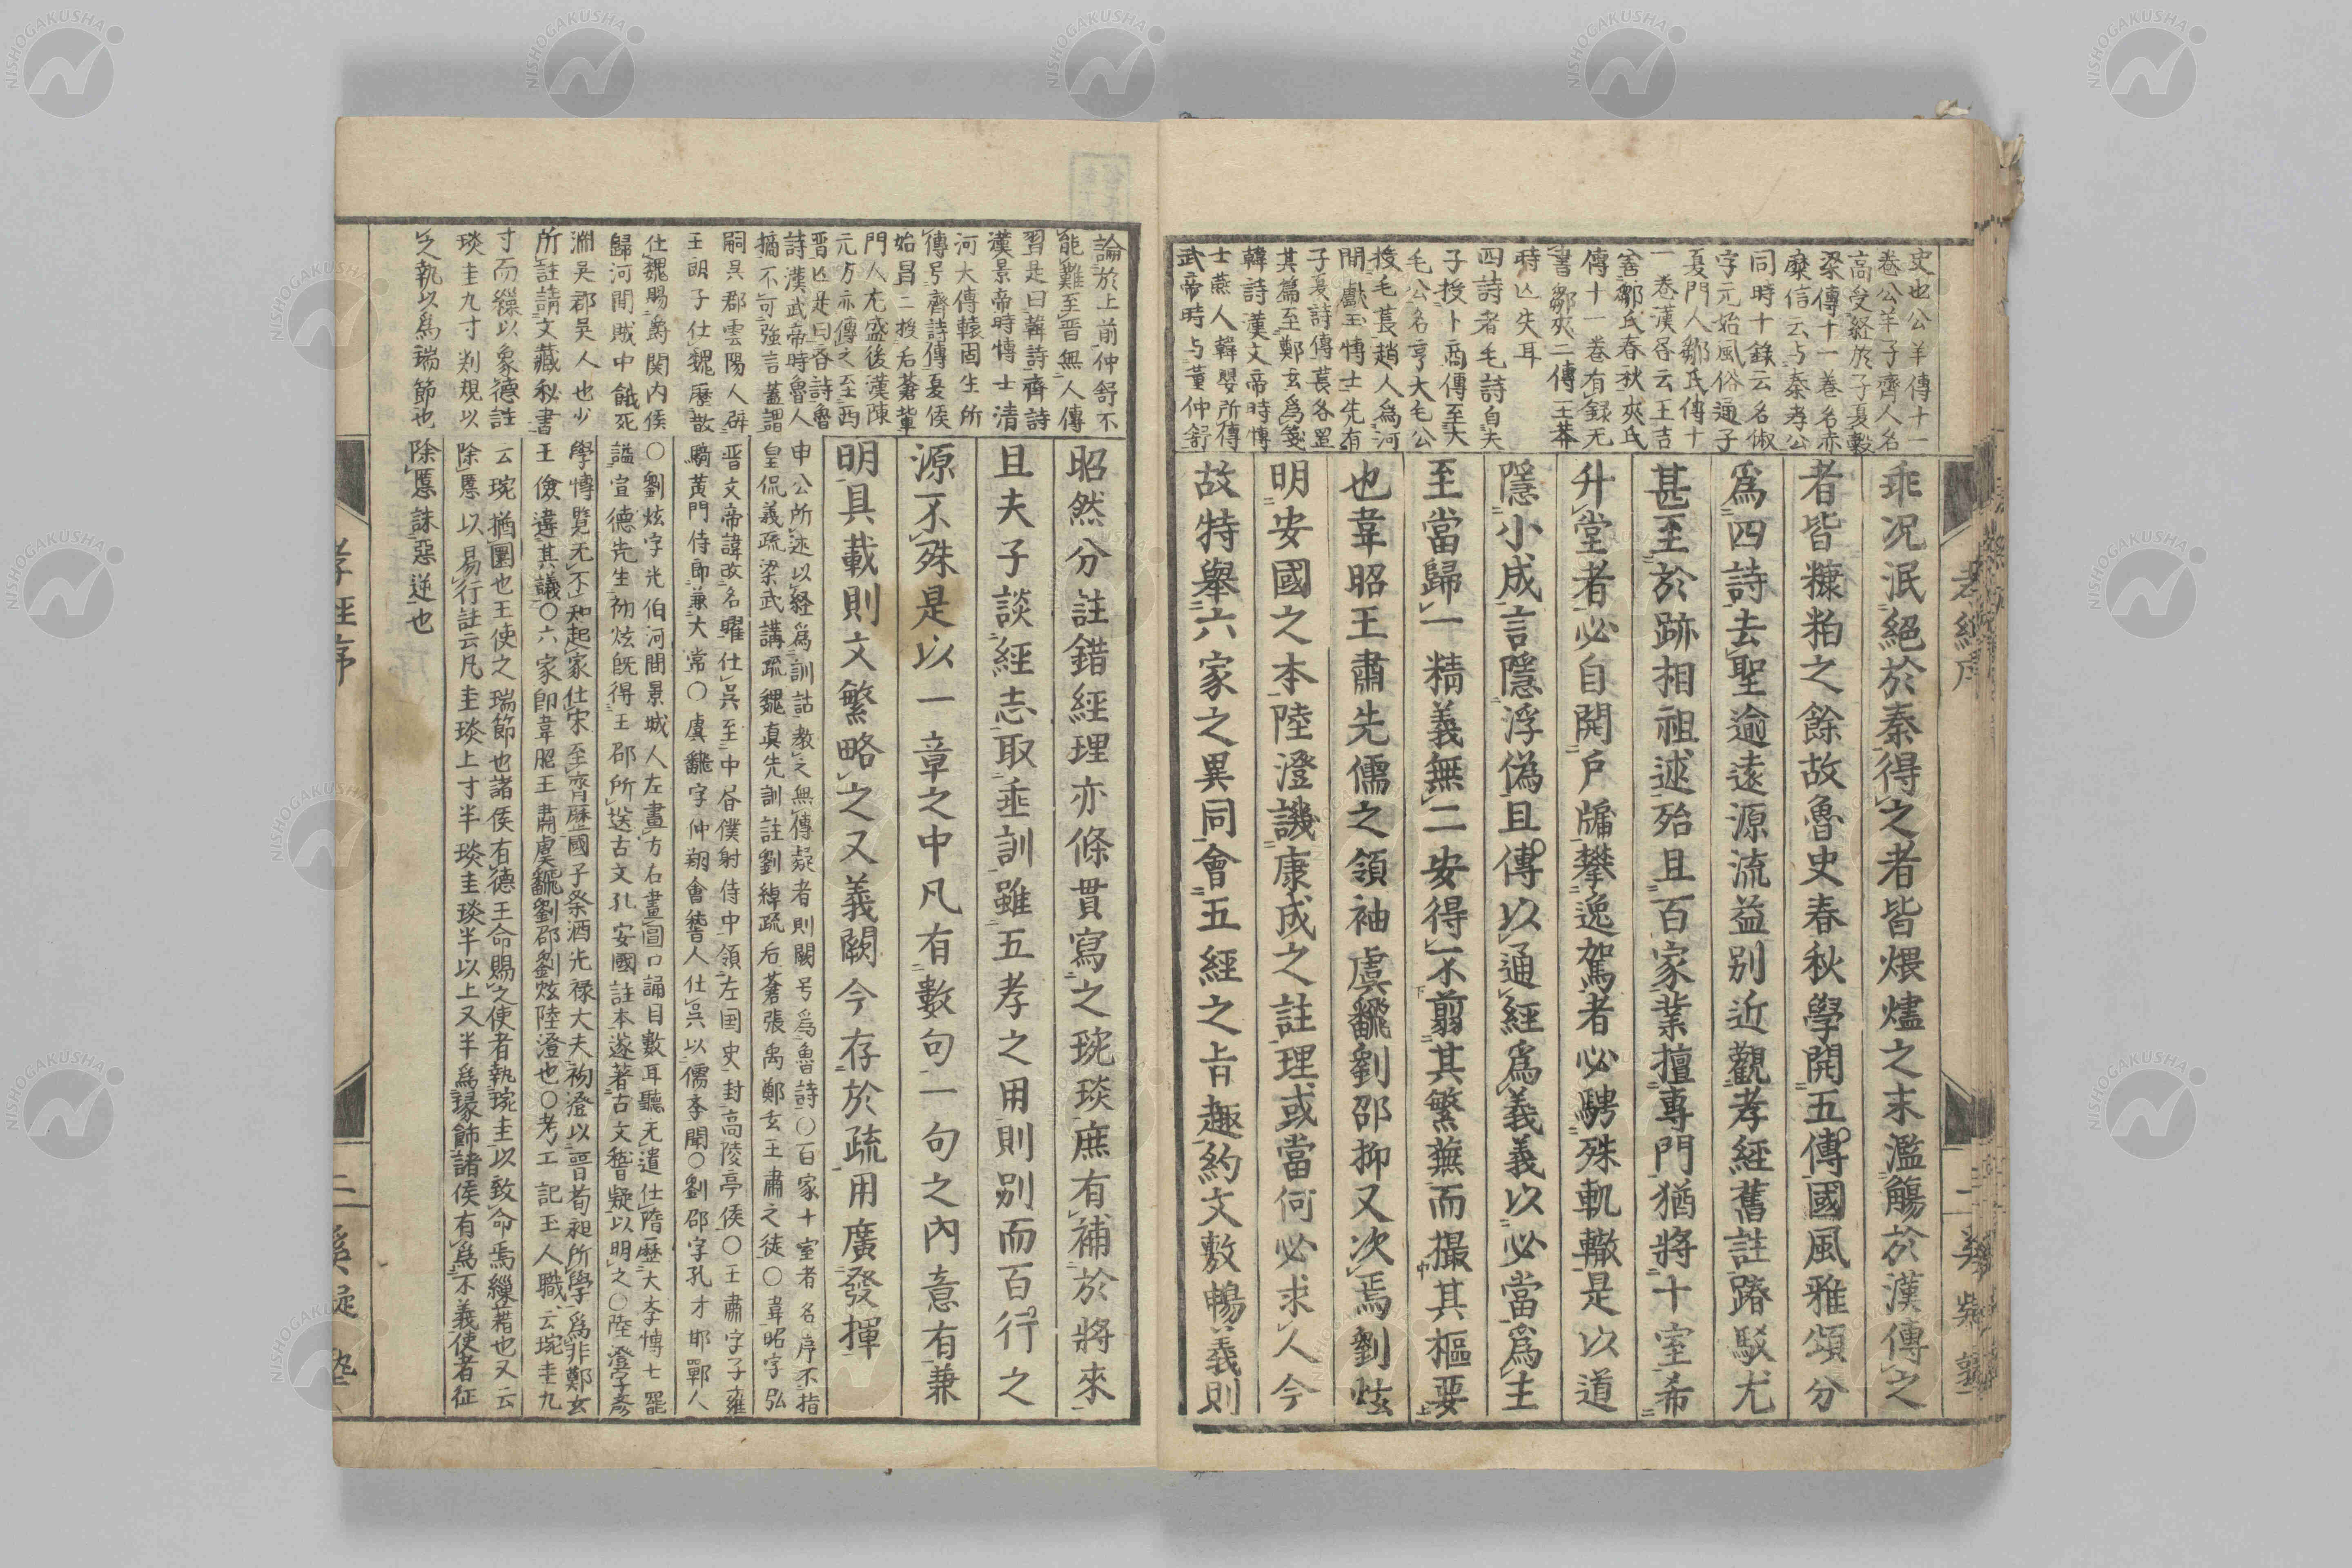 史也公羊傳十一
卷公羊子齊人名
高受経於子夏穀
梁傳十一卷名亦
糜信云与秦孝公
同時十錄云名俶
字元始風俗通子
夏門人鄒氏傳十
一卷漢各云王吉
善鄒氏春秋夾氏
傳十一卷有録无
書鄒夾二傳王莽
時亡失耳
四詩者毛詩自夫
子授卜商傳至大
毛公名亨大毛公
授毛萇趙人為河
間獻王慱士先有
子夏詩傳萇各置
其篇至鄭玄為箋
韓詩漢文帝時慱
士燕人韓嬰所傳
武帝時与董仲舒
乖况泯絕於秦得之者皆煨燼之末濫觴於漢傳之
者皆糠粕之餘故魯史春秋學開五傳國風雅頌分
爲四詩去聖逾遠源流益別近觀孝經舊註踳駁尤
甚至於跡相祖述殆且百家業擅專門猶將十室希
升堂者必自開戶牖攀逸駕者必騁殊軌轍是以道
隱小成言隱浮偽且傳以通經爲義義以必當爲主
至當歸一精義無二安得不翦其繁蕪而撮其樞要
也韋昭王肅先儒之領袖虞飜劉邵抑又次焉劉炫
明安國之本陸澄譏康成之註理或當何必求人今
故特舉六家之異同會五經之旨趣約文敷暢義則
論於上前仲舒不
能難至晋無人傳
習是曰韓詩齊詩
漢景帝時慱士清
河大傅轅固生所
傳号齊詩傳夏侯
始昌二授后蒼軰
門人尤盛後漢陳
元方亦傳之至西
晋亡是曰各詩魯
詩漢武帝時魯人
摘不可強言蓋謂
嗣吳郡雲陽人辟
王朗子仕魏歷散
仕魏賜爵関内侯
歸河間賊中餓死
淵吳郡吳人也少
所註請文藏秘書
寸而繅以象德註
琰圭九寸判規以
之執以爲瑞節也
昭然分註錯經理亦條貫寫之琬琰庶有補於將來
且夫子談經志取垂訓雖五孝之用則別而百行之
源不殊是以一章之中凡有數句一句之內意有兼
明具載則文繁略之又義闕今存於疏用廣發揮
申公所述以経為訓詁教之無傳疑者則闕号為魯詩○百家十室者名序不指
皇侃義疏梁武講疏魏真先訓註劉綽疏后蒼張禹鄭玄王肅之徒○韋昭字弘
晋文帝諱改名曜仕吳至中各僕射侍中領左国史封高陵亭侯○王肅字子雍
騎黃門侍郎兼大常○虞飜字仲翔會稽人仕吳以儒孝聞○劉邵字孔才邯鄲人
○劉炫字光伯河間景城人左畫方右畫圓口誦目數耳聽无遺仕隋歴大李博士罷
謚宣德先生初炫既得王邵所送古文孔安國註本遂著古文稽疑以明之○陸澄字彥
學慱覽无不知起家仕宋至齊歴國子祭酒光禄大夫初澄以晋荀昶所學為非鄭玄
王儉違其議○六家卽韋昭王肅虞飜劉邵劉炫陸澄也○考工記玉人職云琬圭九
云琬猶圜也王使之瑞節也諸侯有德王命賜之使者執琬圭以致命焉繅藉也又云
除慝以易行註云凡圭琰上寸半琰圭琰半以上又半為瑑飾諸侯有為不義使者征
除慝誅惡逆也
孝經序
二
NISHOGAKUSHA